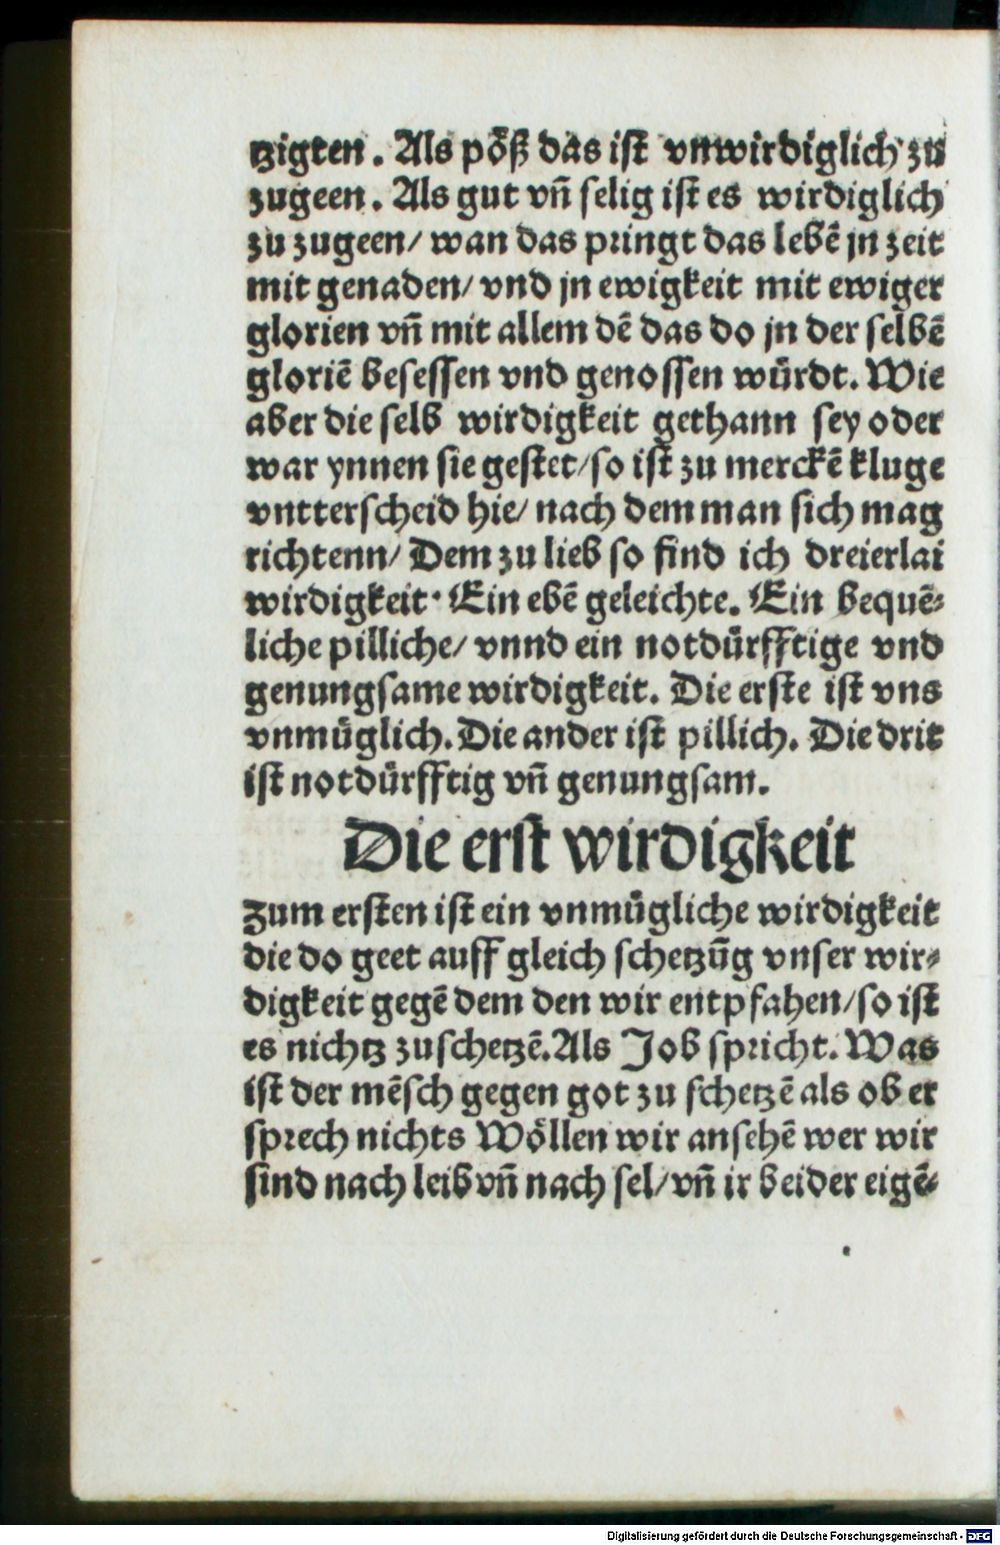 tzigten. Als pöß das ist vnwirdiglich zu
zugeen. Als gut vñ selig ist es wirdiglich
zu zugeen/ wan das pringt das lebē jn zeit
mit genaden/ vnd jn ewigkeit mit ewiger
glorien vñ mit allem dē das do jn der selbē
gloriē besessen vnd genossen würdt. Wie
aber die selb wirdigkeit gethann sey oder
war ynnen sie gestet/so ist zu merckē kluge
vntterscheid hie/ nach dem man sich mag
richtenn/ Dem zu lieb so find ich dreierlai
wirdigkeit· Ein ebē geleichte. Ein bequē⸗
liche pilliche/ vnnd ein notdürfftige vnd
genungsame wirdigkeit. Die erste ist vns
vnmüglich. Die ander ist pillich. Die drit
ist notdürfftig vñ genungsam.
Die erst wirdigkeit
Zum ersten ist ein vnmügliche wirdigkeit
die do geet auff gleich schetzūg vnser wir⸗
digkeit gegē dem den wir entpfahen/so ist
es nichtz zuschetzē. Als Job spricht. Was
ist der mēsch gegen got zu schetzē als ob er
sprech nichts Wöllen wir ansehē wer wir
sind nach leib vñ nach sel/ vñ ir beider eigē⸗
Digitalisierung gefördert durch die Deutsche Forschungsgemeinschaft - DFG